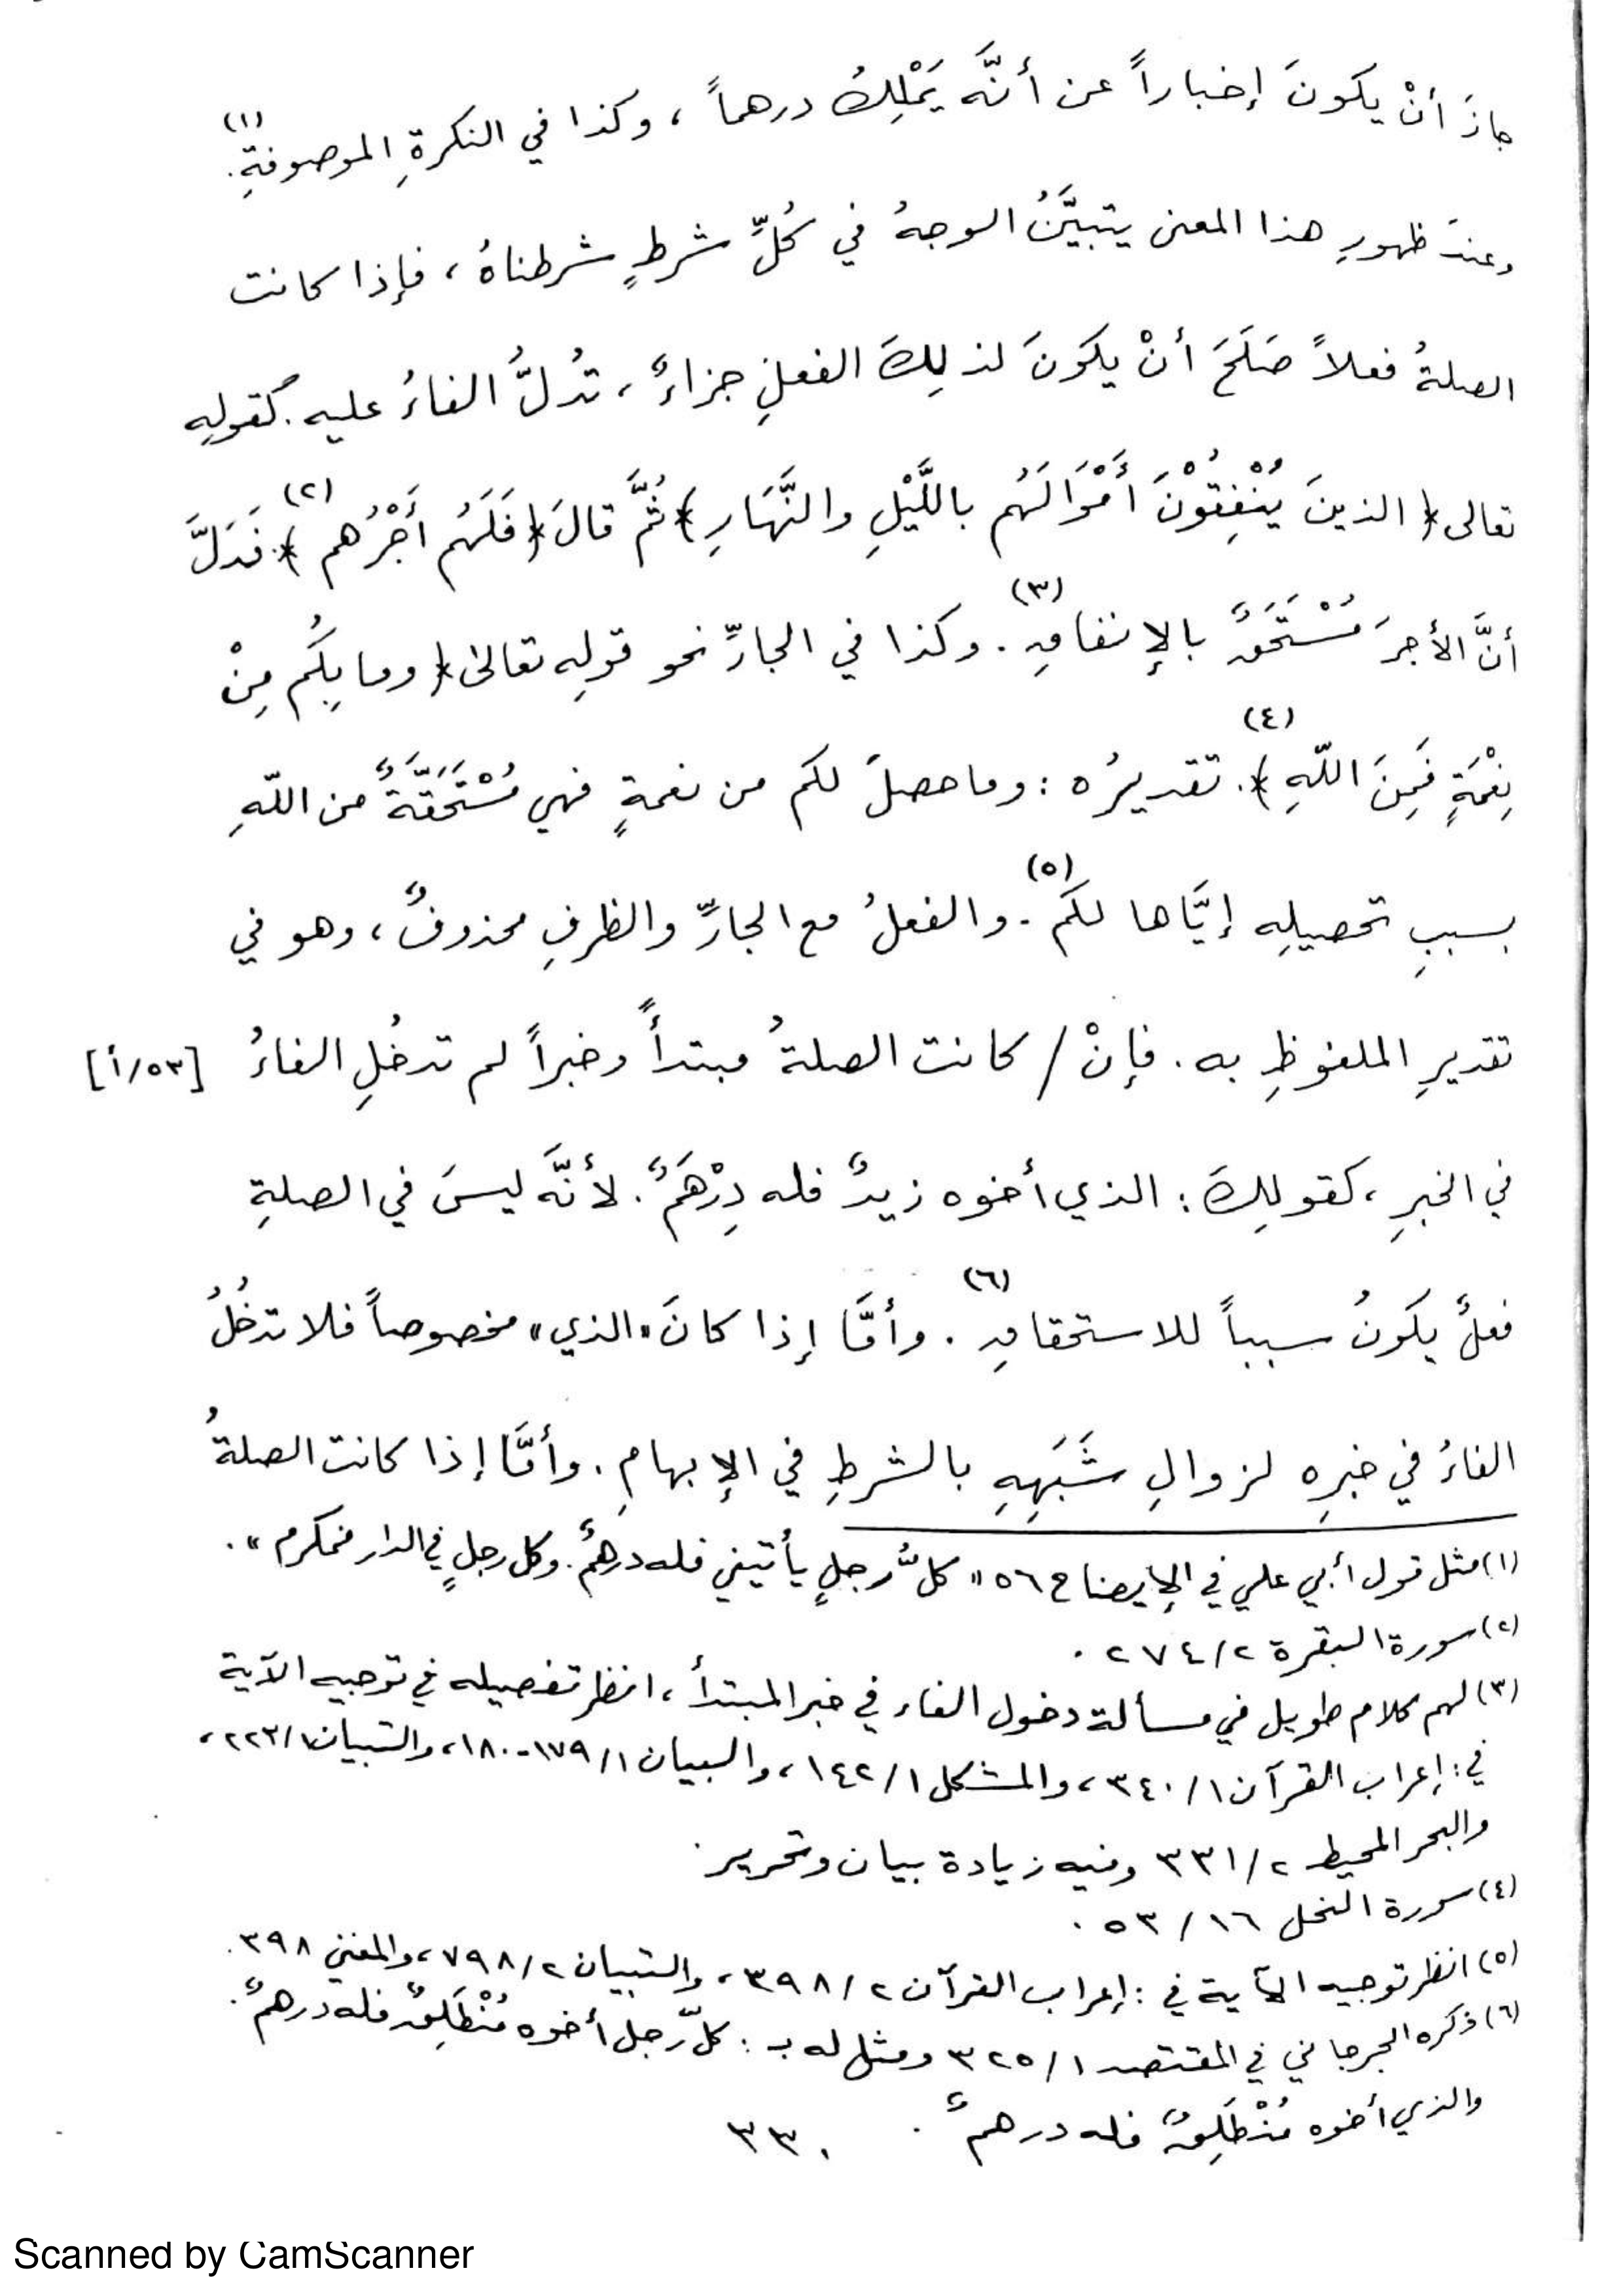 جازَ أنْ يكونَ إخباراً عن أنَّه يَمْلِكُ درهماً ، وكذا في النكرةِ الموصوفةِ.(١)
وعندَ ظهورِ هذا المعنى يتبيَّنُ الوجهُ في كُلِّ شرطٍ شرطناهُ ، فإذا كانت
الصلةُ فعلاً صَلَحَ أنْ يكونَ لذلِكَ الفعلِ جزاءٌ ، تدُلُّ الفاءُ عليه . كقولِه
تعالى ﴿ الذينَ يُنْفِقُوْنَ أَمْوَالَهُم باللَّيْلِ والنَّهَارِ ﴾ ثُمَّ قالَ ﴿ فَلَهُم أَجْرُهم ﴾(٢). فَدَلَّ
أنَّ الأجرَ مُسْتَحَقٌّ بالإنفاقِ(٣). وكذا في الجارِّ نحو قولِه تعالىٰ ﴿ وما بِكُم مِنْ
نِعْمَةٍ فَمِنَ اللّهِ ﴾(٤). تقديرُه : وما حصلَ لكم من نعمةٍ فهي مُسْتَحَقَّةٌ من اللّهِ
بسببِ تحصيلِه إيَّاها لكم(٥). والفعلُ مع الجارِّ والظرفِ محذوفٌ ، وهو في
تقديرِ الملفوظِ به . فإنْ / كانت الصلةُ مبتدأً وخبراً لم تدخُلِ الفاءُ [٥٣/أ]
في الخبرِ ، كقولِكَ : الذي أخوه زيدٌ فله دِرْهَمٌ . لأنَّه ليسَ في الصلةِ
فعلٌ يكونُ سبباً للاستحقاقِ(٦). وأمَّا إذا كانَ «الذي» مخصوصاً فلا تدخُلُ
الفاءُ في خبرِه لزوالِ شَبَهِهِ بالشرطِ في الإبهامِ . وأمَّا إذا كانت الصلةُ
(١) مثل قول أبي علي في الإيضاح ٥٦ « كلُّ رجلٍ يأتيني فله درهمٌ . وكل رجلٍ في الدار فمكرم » .
(٢) سورة البقرة ٢/ ٢٧٤ .
(٣) لهم كلام طويل في مسألة دخول الفاء في خبر المبتدأ ، انظر تفصيله في توجيه الآية
في : إعراب القرآن ١/ ٣٤٠ ، والمشكل ١/ ١٤٢ ، والبيان ١/ ١٧٩-١٨٠ ، والتبيان ١/ ٢٢٣ ،
والبحر المحيط ٢/ ٣٣١ وفيه زيادة بيان وتحرير .
(٤) سورة النحل ١٦/ ٥٣ .
(٥) انظر توجيه الآية في : إعراب القرآن ٢/ ٣٩٨ ، والتبيان ٢/ ٧٩٨ ، والمغني ٣٩٨ .
(٦) ذكره الجرجاني في المقتصد ١/ ٣٢٥ ومثل له بـ : كلّ رجل أخوه مُنْطَلِقٌ فله درهمٌ .
والذي أخوه مُنْطَلِقٌ فله درهمٌ .
٣٣٠
Scanned by CamScanner